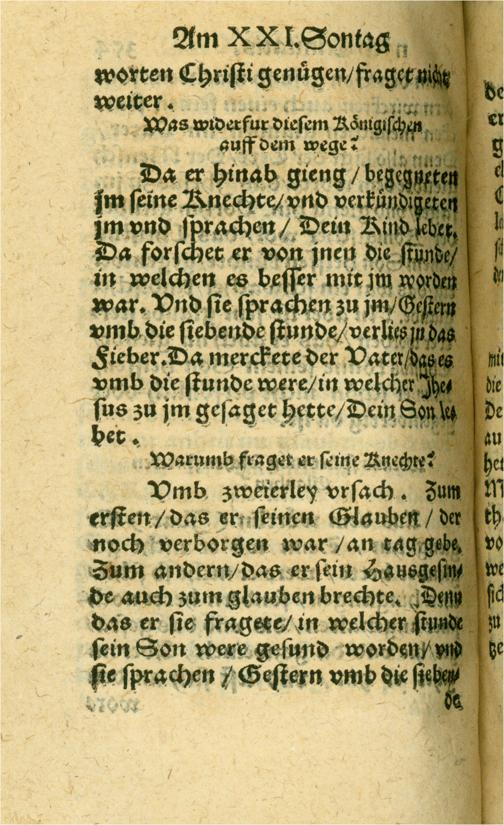 Am XXI. Sontag
worten Christi genügen/fraget nicht
weiter.
Was widerfur diesem Königischen
auff dem wege?
Da er hinab gieng / begegneten
jm seine Knechte/vnd verkündigeten
jm vnd sprachen / Dein Kind lebet.
Da forschet er von jnen die stunde/
in welchen es besser mit jm worden
war. Vnd sie sprachen zu jm/Gestern
vmb die siebende stunde/verlies jn das
Fieber. Da merckete der Vater/das es
vmb die stunde were/in welcher Jhe⸗
sus zu jm gesaget hette/Dein Son le⸗
bet.
Warumb fraget er seine Knechte?
Vmb zweierley vrsach. Zum
ersten/das er seinen Glauben / der
noch verborgen war /an tag gebe.
Zum andern/das er sein Hausgesin⸗
de auch zum glauben brechte. Denn
das er sie fragete/in welcher stunde
sein Son were gesund worden/vnd
sie sprachen / Gestern vmb die sieben⸗
de